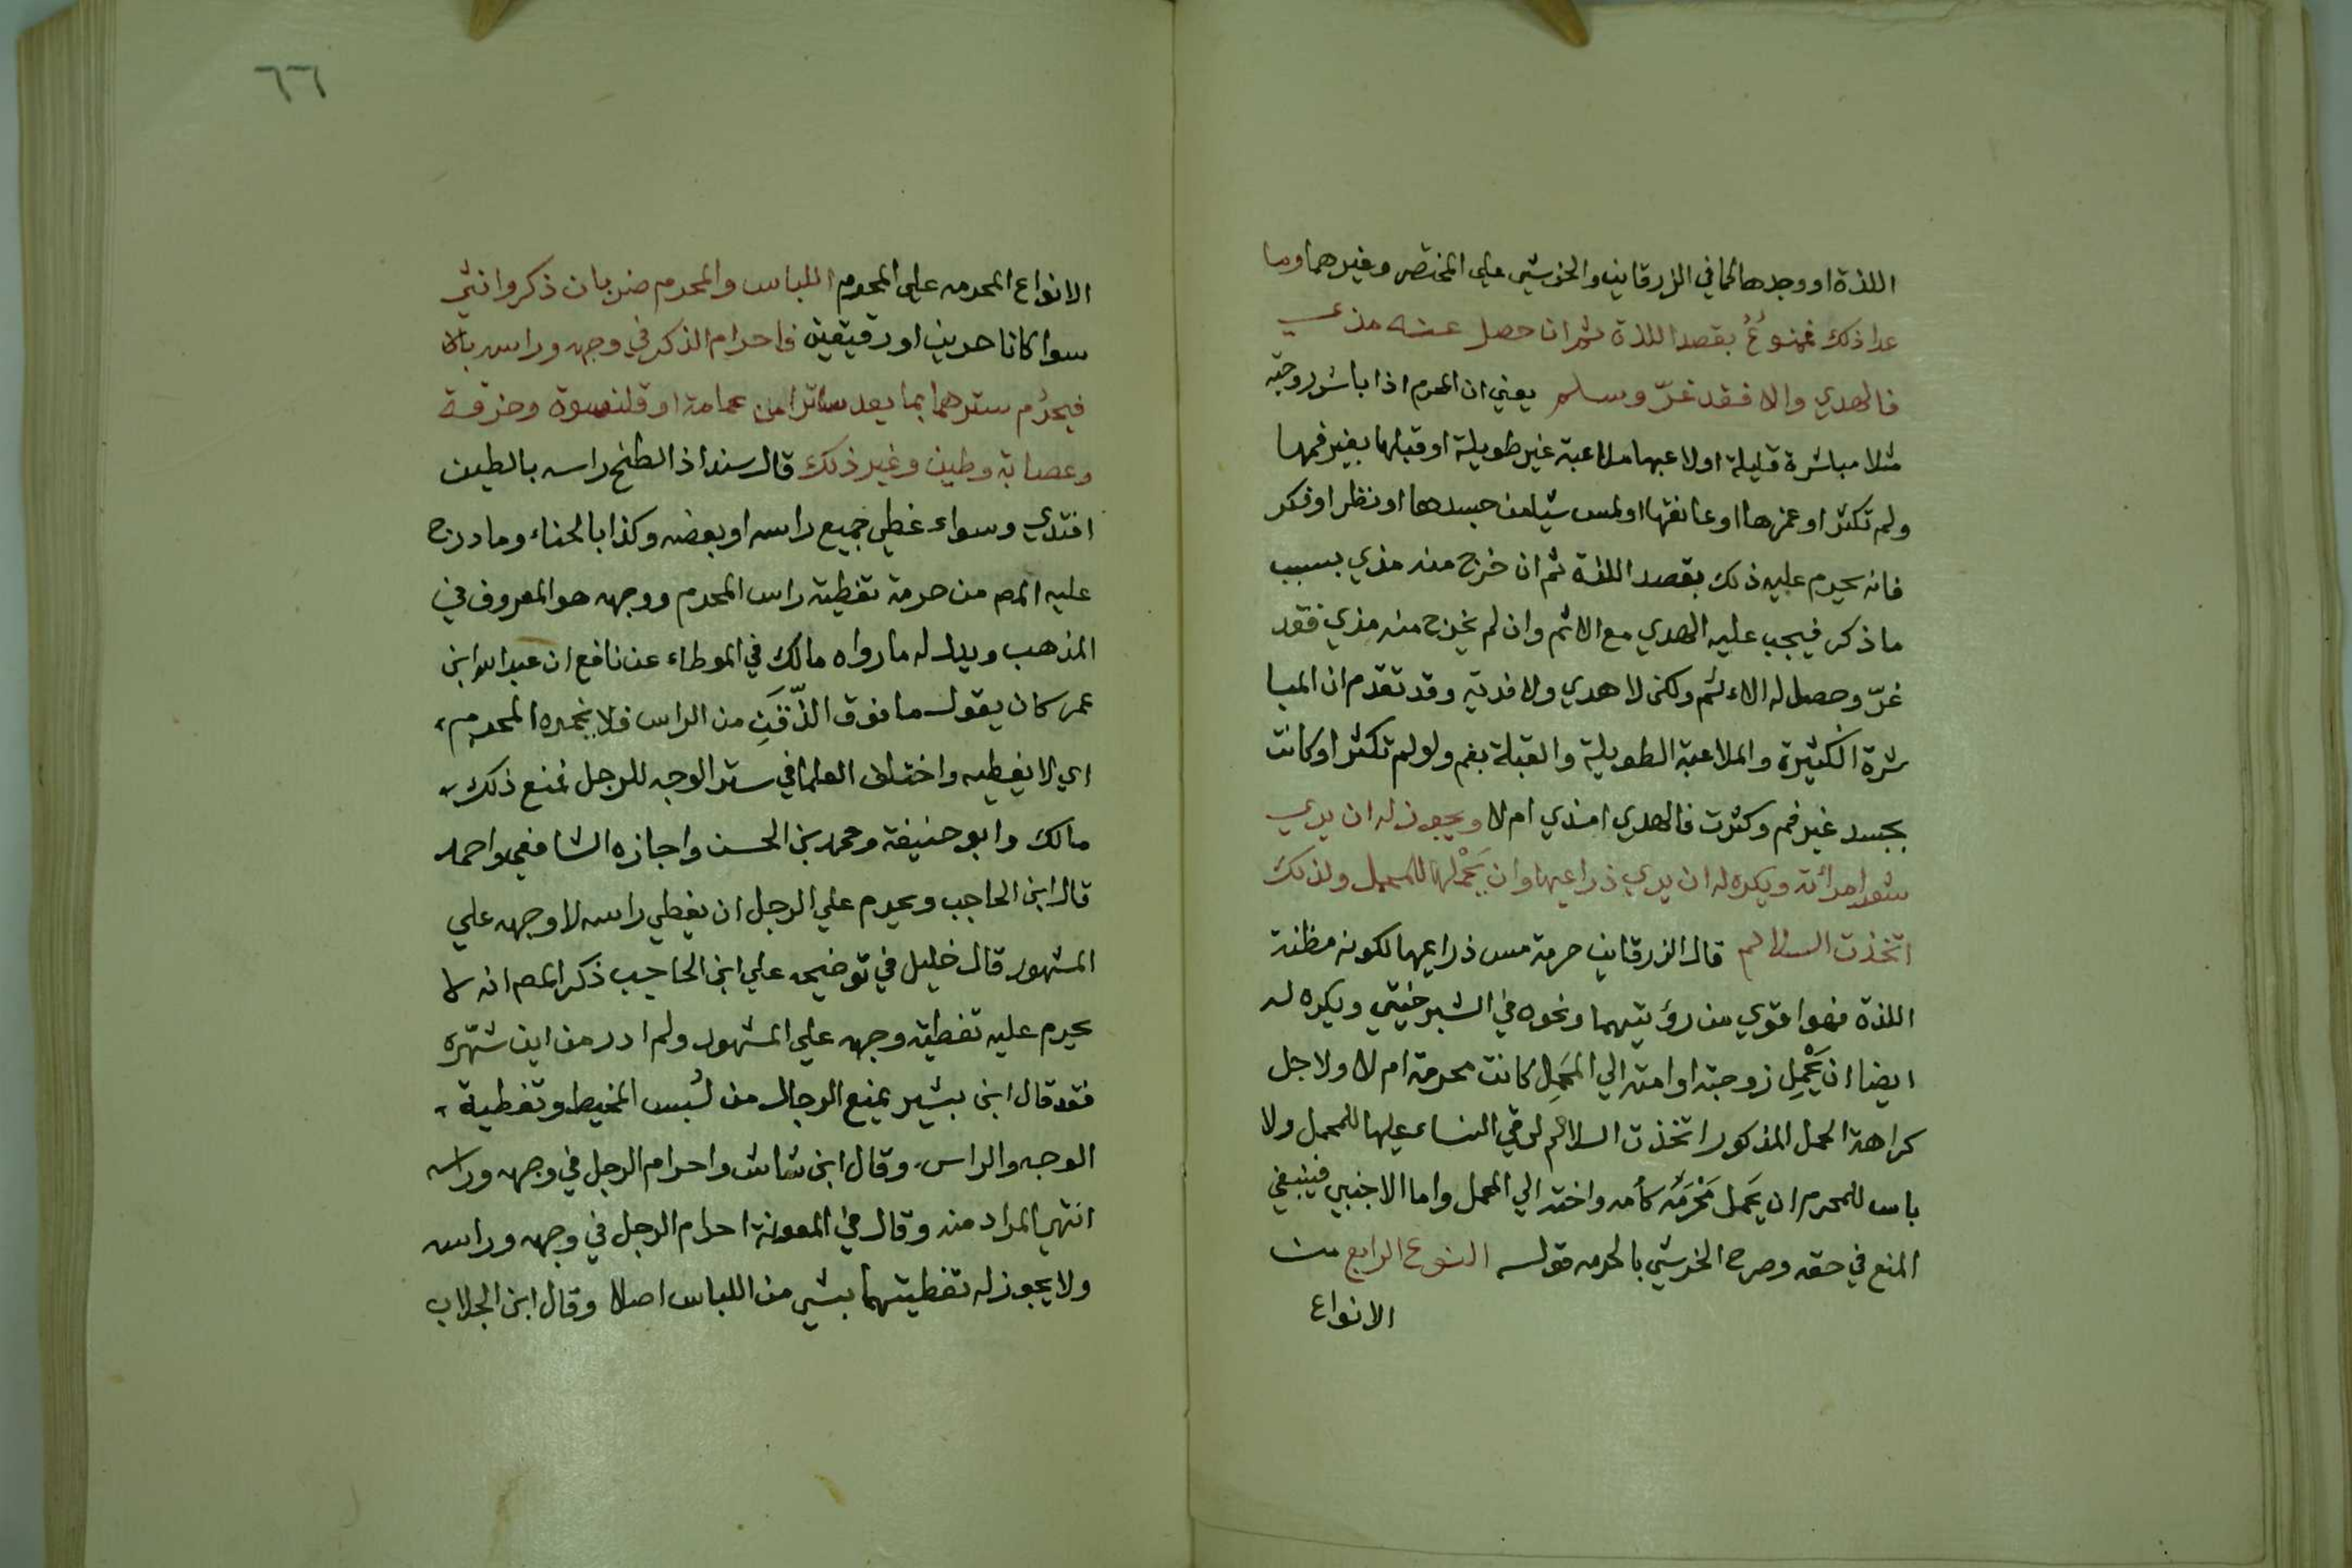 اللذة او وجدها كما في الزرقاني والخرشي علي المختصر وغيرهما وما
عدا ذلك فممنوعٌ بقصد اللذة ثم ان حصل عنه مذي
فالهدي والا فقد غرّ وسلم يعني ان المحرم اذا باشر زوجته
مثلا مباشرة قليلة او لاعبها ملاعبة غير طويلة او قبلها بغير فمها
ولم تكثر او غمزها او عانقها او لمس شيا من جسدها او نظر او فكر
فانه يحرم عليه ذلك بقصد اللذة ثم ان خرج منه مذي بسبب
ما ذكر فيجب عليه الهدي مع الاثم وان لم يخرج منه مذي فقد
غرّ وحصل له الاءثم ولكن لا هدي ولا فدية وقد تقدم ان المبا
شرة الكثيرة والملاعبة الطويلة والقبلة بفم ولو لم تكثر او كانت
بجسد غير فم وكثرت فالهدي امذي ام لا ويجوز له ان يري
شعر امرائته ويكره له ان يري ذراعيها وان يَحْملها للمحمل ولذلك
اتخذت السلالم قال الزرقاني حرمة مس ذراعيها لكونه مظنة
اللذة فهوا قوي من رؤيتهما ونحوه في الشبرخيتي ويكره له
ايضا ان يَحْمِل زوجته او امته الي المَحمِل كانت محرمة ام لا ولاجل
كراهة الحمل المذكور اتخذت السلالم لرقي النساء عليها للمحمل ولا
باس للمحرم ان يَحمل مَحْرَمَه كأمه واخته الي المحمل واما الاجنبي فينبغي
المنع في حقه وصرح الخرشي بالحرمه قوله النوع الرابع من
الانواع
٦٦
الانواع المحرمه علي المحرم اللباس والمحرم ضربان ذكر وانثي
سوا كانا حرين او رقيقين فاحرام الذكر في وجهه وراسه بالا
فيحرُم سترهما بما يعد ساترا من عمامة او قلنسوة وخرقة
وعصابة وطين وغير ذلك قال سند اذا لطخ راسه بالطين
افتدي وسواء غطي جميع راسه او بعضه وكذا بالحناء وما درج
عليه المص من حرمة تغطية راس المحرم ووجهه هو المعروف في
المذهب ويدل له ما رواه مالك في الموطاء عن نافع ان عبد الله ابن
عمر كان يقول ما فوق الذّقَنِ من الراس فلا يخمره المحرم
اي لا يغطيه واختلف العلما في ستر الوجه للرجل فمنع ذلك
مالك وابو حنيفة ومحمد بن الحسن واجازه الشافعي واحمد
قال ابن الحاجب ويحرم علي الرجل ان يغطي راسه لا وجهه علي
المشهور قال خليل في توضيحه علي ابن الحاجب ذكر المص انه لا
يحرم عليه تغطية وجهه علي المشهور ولم ادر من اين شهّره
فقد قال ابن بشير يمنع الرجال من لُبس المخيط وتغطية
الوجه والراس وقال ابن شاش واحرام الرجل في وجهه وراسه
انتهي المراد منه وقال في المعونة احرام الرجل في وجهه وراسه
ولا يجوز له تغطيتهما بشي من اللباس اصلا وقال ابن الجلاب